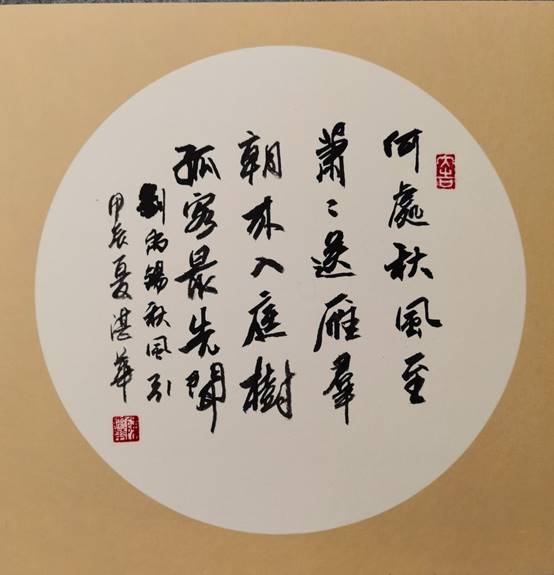 何處秋風至
蕭〻送雁羣
朝來入庭樹
孤客最先聞
劉禹錫秋風引
甲辰夏湛華
大吉